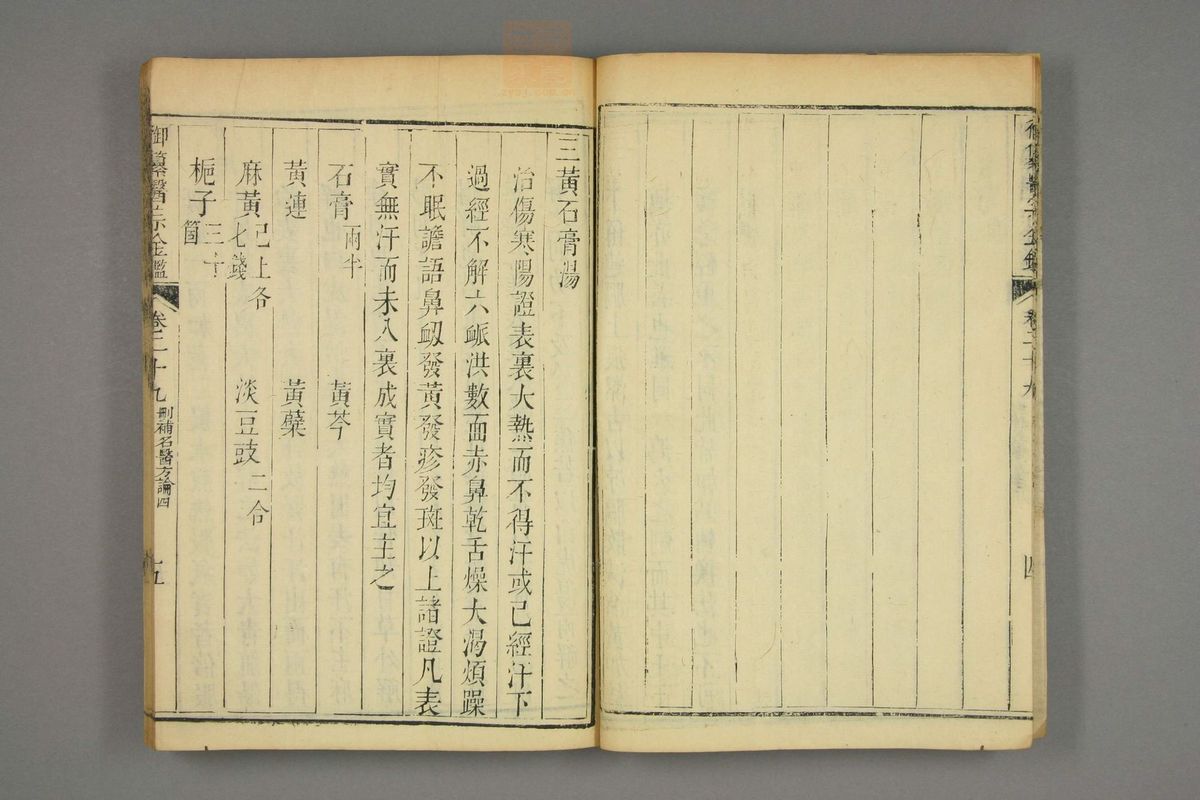 三黃石膏湯
治傷寒陽證表裏大熱而不得汗或已經汗下
過經不解六衇洪數面赤鼻乾舌燥大渴煩躁
不眠譫語鼻衂發黃發疹發斑以上諸證凡表
實無汗而未入裏成實者均宜主之
石膏兩半 黃芩
黃連 黃蘗
麻黃已上各七錢 淡豆豉二合
梔子三十箇
御纂醫宗金鑑 卷二十九 刪補名醫方論四 五
御纂醫宗金鑑 卷二十九 四